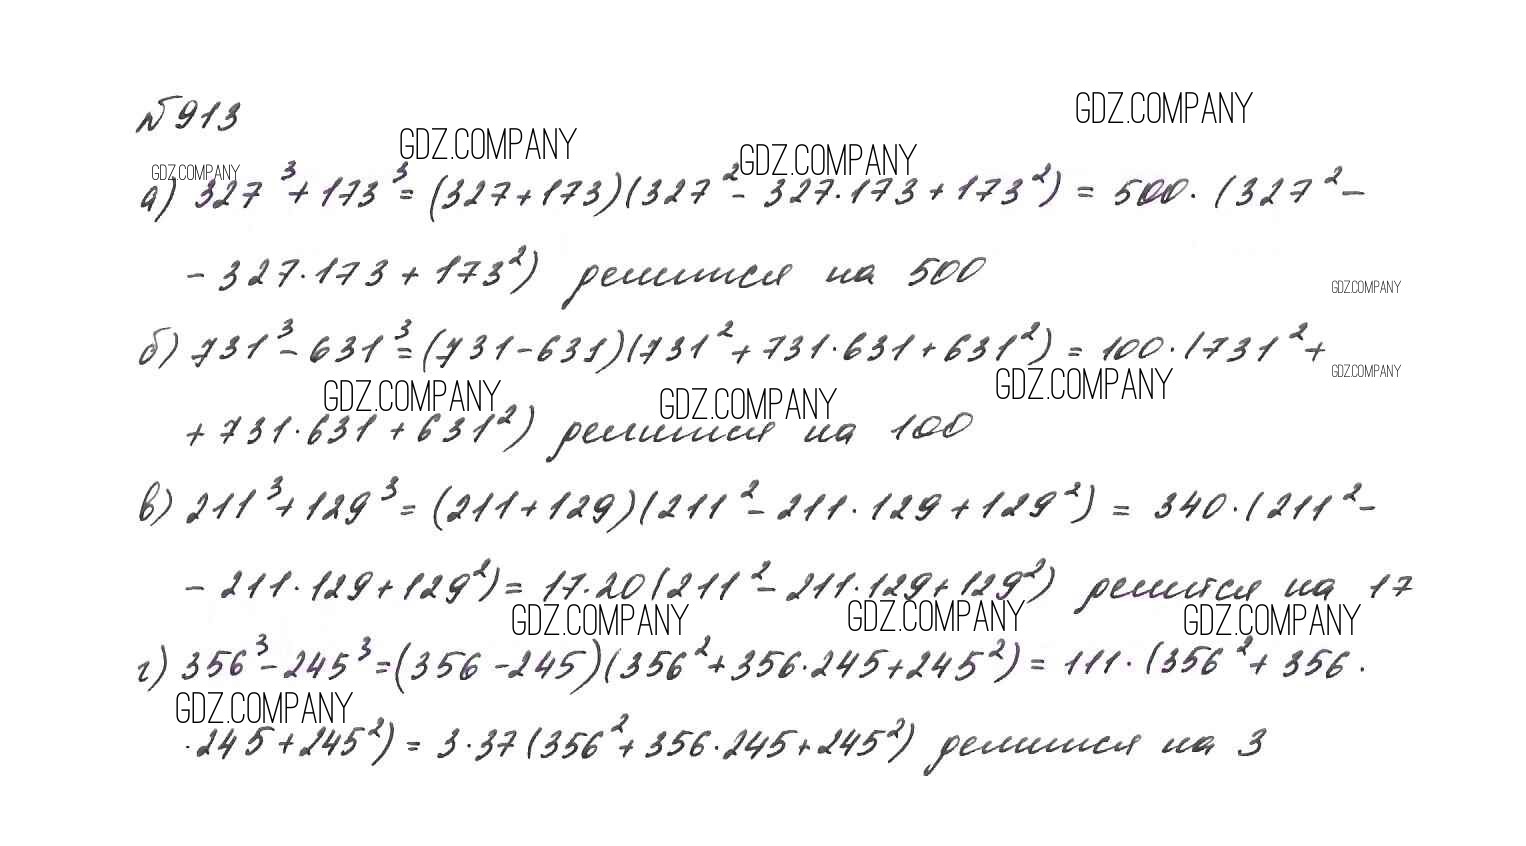 №913
GDZ.COMPANY
GDZ.COMPANY
GDZ.COMPANY
GDZ.COMPANY
а) 327³ + 173³ = (327 + 173)(327² - 327·173 + 173²) = 500·(327² -
- 327·173 + 173²) делится на 500
GDZ.COMPANY
б) 731³ - 631³ = (731 - 631)(731² + 731·631 + 631²) = 100·(731² +
GDZ.COMPANY
GDZ.COMPANY
GDZ.COMPANY
GDZ.COMPANY
+ 731·631 + 631²) делится на 100
в) 211³ + 129³ = (211 + 129)(211² - 211·129 + 129²) = 340·(211² -
- 211·129 + 129²) = 17·20(211² - 211·129 + 129²) делится на 17
GDZ.COMPANY
GDZ.COMPANY
GDZ.COMPANY
г) 356³ - 245³ = (356 - 245)(356² + 356·245 + 245²) = 111·(356² + 356·
GDZ.COMPANY
·245 + 245²) = 3·37(356² + 356·245 + 245²) делится на 3